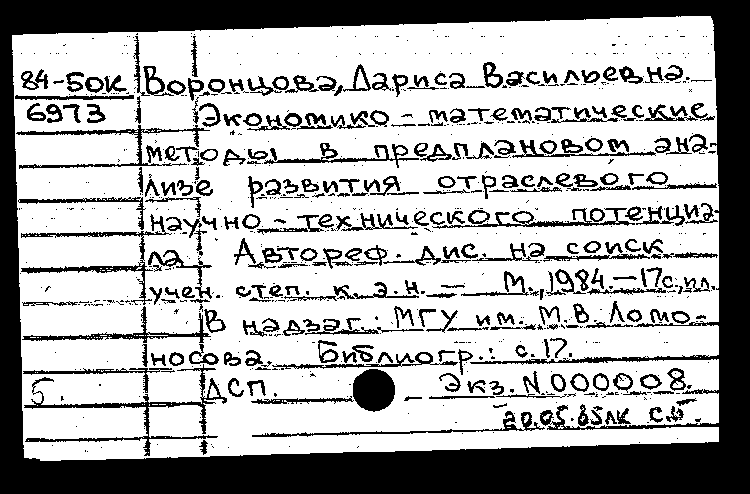 84-5ок Воронцова, Лариса Васильевна.
6973 Экономико-математические
методы в предплановом ана-
лизе развития отраслевого
научно-технического потенциа-
ла Автореф. дис. на соиск
учен. степ. к.э.н. — М., 1984.—17с, ил.
В надзаг.: МГУ им. М.В. Ломо-
носова. Библиогр.: с.17.
5. ДСП. Экз. N 000008.
20.05.85